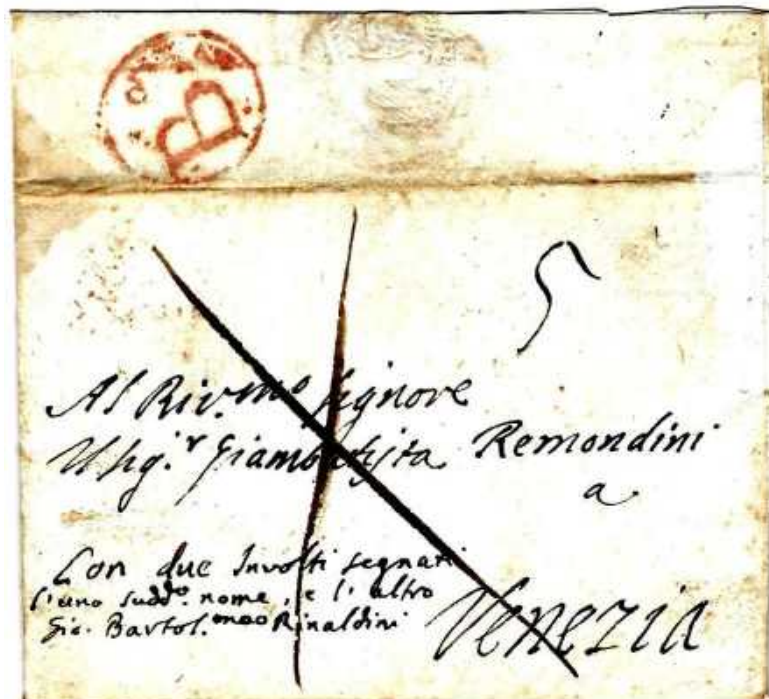 B
5
Al Riv.mo Signore
Il Sig.r Giambatista Remondini
a
Con due Involti segnati
l'uno sudd.o nome, e l'altro
Gio. Bartol.meo Rinaldini
Venezia